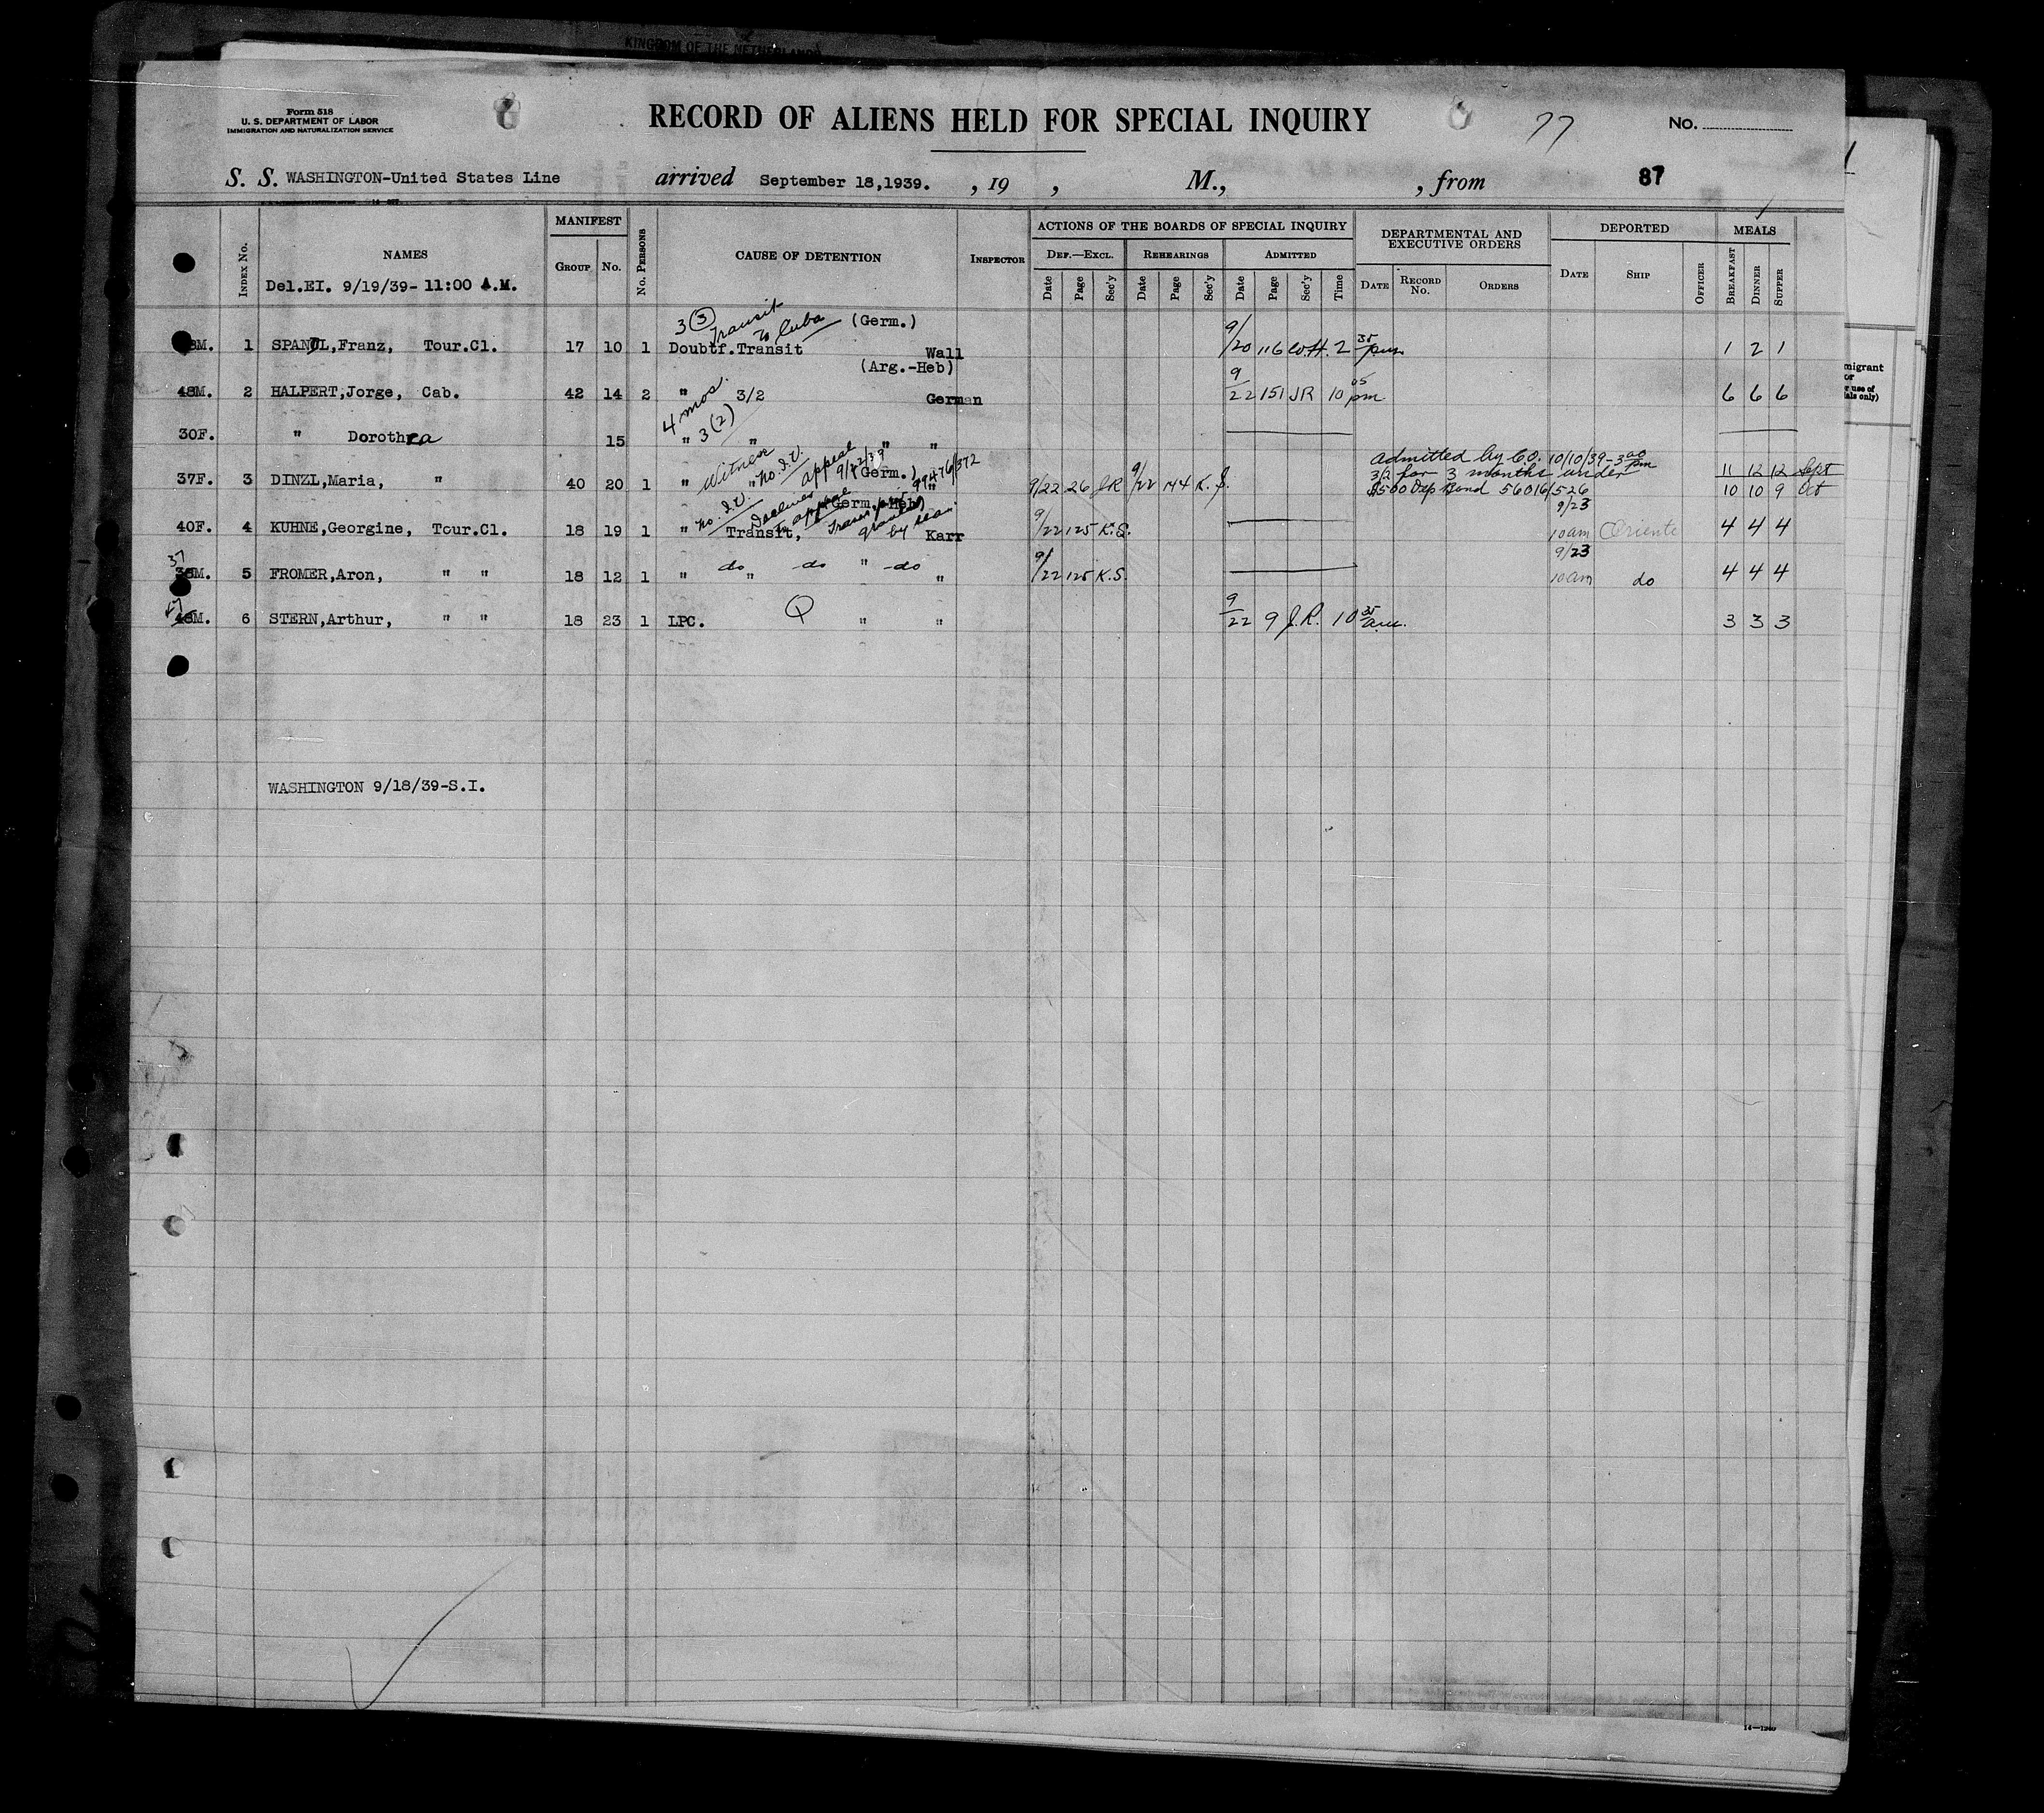 KINGDOM OF THE NETHERLANDS
Form 518
U. S. DEPARTMENT OF LABOR
IMMIGRATION AND NATURALIZATION SERVICE
RECORD OF ALIENS HELD FOR SPECIAL INQUIRY
77
No.
S. S. WASHINGTON-United States Line arrived September 18,1939. , 19 , M., , from 87
MANIFEST
ACTIONS OF THE BOARDS OF SPECIAL INQUIRY
DEPARTMENTAL AND EXECUTIVE ORDERS
DEPORTED
MEALS
INDEX No. NAMES GROUP No. No. PERSONS CAUSE OF DETENTION INSPECTOR DEF.—EXCL. REHEARINGS ADMITTED
Date Page Sec'y Date Page Sec'y Date Page Sec'y Time DATE RECORD No. ORDERS DATE SHIP OFFICER BREAKFAST DINNER SUPPER
Del.EI. 9/19/39- 11:00 A.M.
3 (3) Transit to Cuba (Germ.)
8M. 1 SPANL,Franz, Tour.Cl. 17 10 1 Doubtf.Transit Wall 9/20 116 W.H. 2 35 pm 1 2 1
(Arg.-Heb)
48M. 2 HALPERT,Jorge, Cab. 42 14 2 " 3/2 German 9/22 151 JR 10 05 pm 6 6 6
4 mos.
30F. " Dorothea 15 " 3(2) " " "
Witness no. I.V. appeal 9/22/39 (Germ.) 99476/372
admitted by CO. 10/10/39-3 00 pm
37F. 3 DINZL,Maria, " 40 20 1 " " " 9/22 26 JR 9/22 144 K. S. 3/2 for 3 months under 11 12 12 Sept
$500 Dep Bond 56016/526 10 10 9 Oct
no. I.V. Declines to appeal (Germ.Heb) Trans. granted by sea
40F. 4 KUHNE,Georgine, Tour.Cl. 18 19 1 " Transit, Karr 9/22 125 K.S. 9/23 10am Oriente 4 4 4
37
M. 5 FROMER,Aron, " " 18 12 1 " do " do " do " 9/22 125 K.S. 9/23 10am do 4 4 4
47
M. 6 STERN,Arthur, " " 18 23 1 LPC. Q " " 9/22 9 J.R. 10 35 am. 3 3 3
WASHINGTON 9/18/39-S.I.
migrant
or
r use of
ials only)